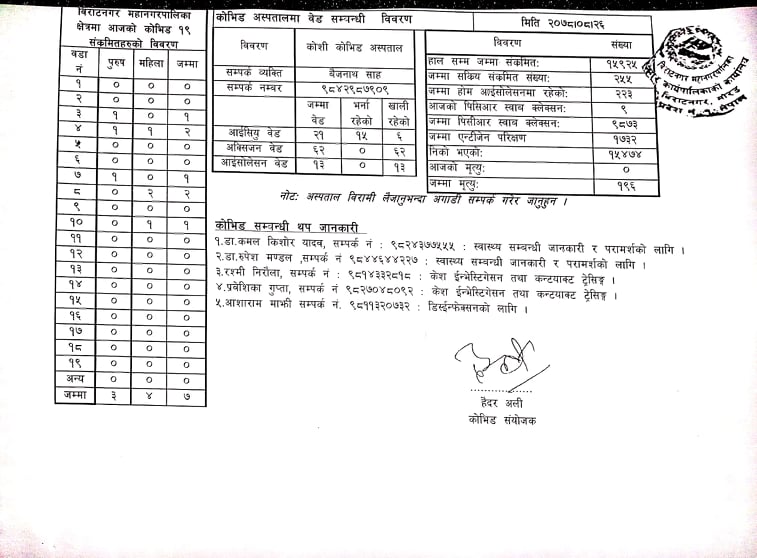 बिराटनगर महानगरपालिका
क्षेत्रमा आजको कोभिड १९
संक्रमितहरुको विवरण
वडा नं पुरुष महिला जम्मा
१ ० ० ०
२ ० ० ०
३ १ ० १
४ १ १ २
५ ० ० ०
६ ० ० ०
७ १ ० १
८ ० २ २
९ ० ० ०
१० ० १ १
११ ० ० ०
१२ ० ० ०
१३ ० ० ०
१४ ० ० ०
१५ ० ० ०
१६ ० ० ०
१७ ० ० ०
१८ ० ० ०
१९ ० ० ०
अन्य ० ० ०
जम्मा ३ ४ ७
कोभिड अस्पतालमा वेड सम्वन्धी विवरण
विवरण कोशी कोभिड अस्पताल
सम्पर्क व्यक्ति बैजनाथ साह
सम्पर्क नम्वर ९८४२९८७९०९
जम्मा वेड भर्ना रहेको खाली रहेको
आईसियु वेड २१ १५ ६
अक्सिजन वेड ६२ ० ६२
आईसोलेसन वेड १३ ० १३
मिति २०७८।०८।२६
विवरण संख्या
हाल सम्म जम्मा संक्रमित: १५९२५
जम्मा सक्रिय संक्रमित संख्या: २५५
जम्मा होम आईसोलेसनमा रहेको: २२३
आजको पिसिआर स्वाव क्लेक्सन: ९
जम्मा पिसीआर स्वाव क्लेक्सन: ९८७३
जम्मा एन्टीजेन परिक्षण १७३२
निको भएको: १५४७४
आजको मृत्यु: ०
जम्मा मृत्यु: १९६
नोट: अस्पताल विरामी लैजानुभन्दा अगाडी सम्पर्क गरेर जानुहुन ।
कोभिड सम्वन्धी थप जानकारी
१.डा.कमल किशोर यादव, सम्पर्क नं : ९८२४३७७५५५ : स्वास्थ्य सम्वन्धी जानकारी र परामर्शको लागि ।
२.डा.रुपेश मण्डल ,सम्पर्क नं : ९८४४६४४२२७ : स्वास्थ्य सम्वन्धी जानकारी र परामर्शको लागि ।
३.रश्मी निरौला, सम्पर्क नं : ९८१४३३२८१८ : केश ईन्भेस्टिगेसन तथा कन्टयाक्ट ट्रेसिङ्ग ।
४.प्रवेशिका गुप्ता, सम्पर्क नं ९८२७०४८०९२ : केश ईन्भेस्टिगेसन तथा कन्टयाक्ट ट्रेसिङ्ग ।
५.आशाराम माझी सम्पर्क नं. ९८११३२०७३२ : डिस्ईन्फेक्सनको लागि ।
हैदर अली
कोभिड संयोजक